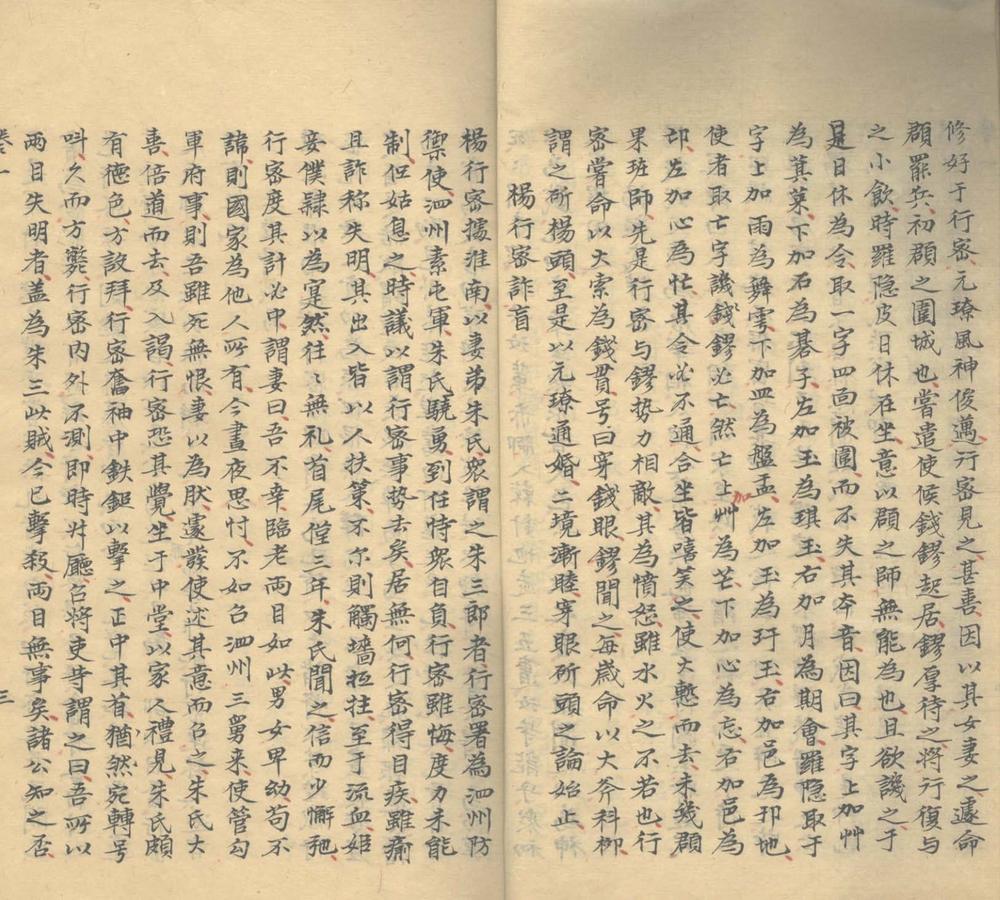 修好于行密元璙風神俊邁行密見之甚善因以其女妻之遽命
頵罷兵初頵之圍城也嘗遣使候錢鏐起居鏐厚待之將行復与
之小飲時羅隐皮日休在坐意以頵之師無能為也且欲譏之于
是日休為令取一字四面被圍而不失其夲音因曰其字上加艸
為萁菜下加石為碁子左加玉為琪玉右加月為期會羅隐取于
字上加雨為舞雩下加皿為盤盂左加玉為玗玉右加邑為邘地
使者取亡字譏錢鏐必亡然亡上加艸為芒下加心為忘右加邑為
邙左加心為忙其令必不通合坐皆嘻笑之使大慙而去未幾頵
果班師先是行密与鏐势力相敵其為憤怒雖水火之不若也行
密嘗命以大索為錢貫号曰穿錢眼鏐聞之每歲命以大斧科柳
謂之斫楊頭至是以元璙通婚二境漸睦穿眼斫頭之論始止
楊行密詐盲
楊行密㨿淮南以妻弟朱氏衆謂之朱三郎者行密署為泗州防
禦使泗州素屯軍朱氏驍勇到任恃衆自負行密雖悔度力未能
制但姑息之時議以謂行密事勢去矣居無何行密得目疾雖痊
且詐称失明其出入皆以人扶策不尔則觸墻抵拄至于流血姬
妾僕隷以為寔然往〻無礼首尾僅三年朱氏聞之信而少懈弛
行密度其計必中謂妻曰吾不幸臨老兩目如此男女卑㓜苟不
諱則國家為他人所有今晝夜思忖不如召泗州三舅来使管勾
軍府事則吾雖死無恨妻以為肰遽發使述其意而召之朱氏大
喜倍道而去及入謁行密恐其覺坐于中堂以家人禮見朱氏頗
有德色方設拜行密奮袖中鉄鎚以擊之正中其首猶然宛轉号
呌久而方斃行密内外不測即時升廳召將吏等謂之曰吾所以
兩目失明者盖為朱三此賊今已擊殺兩目無事矣諸公知之否
卷一 三